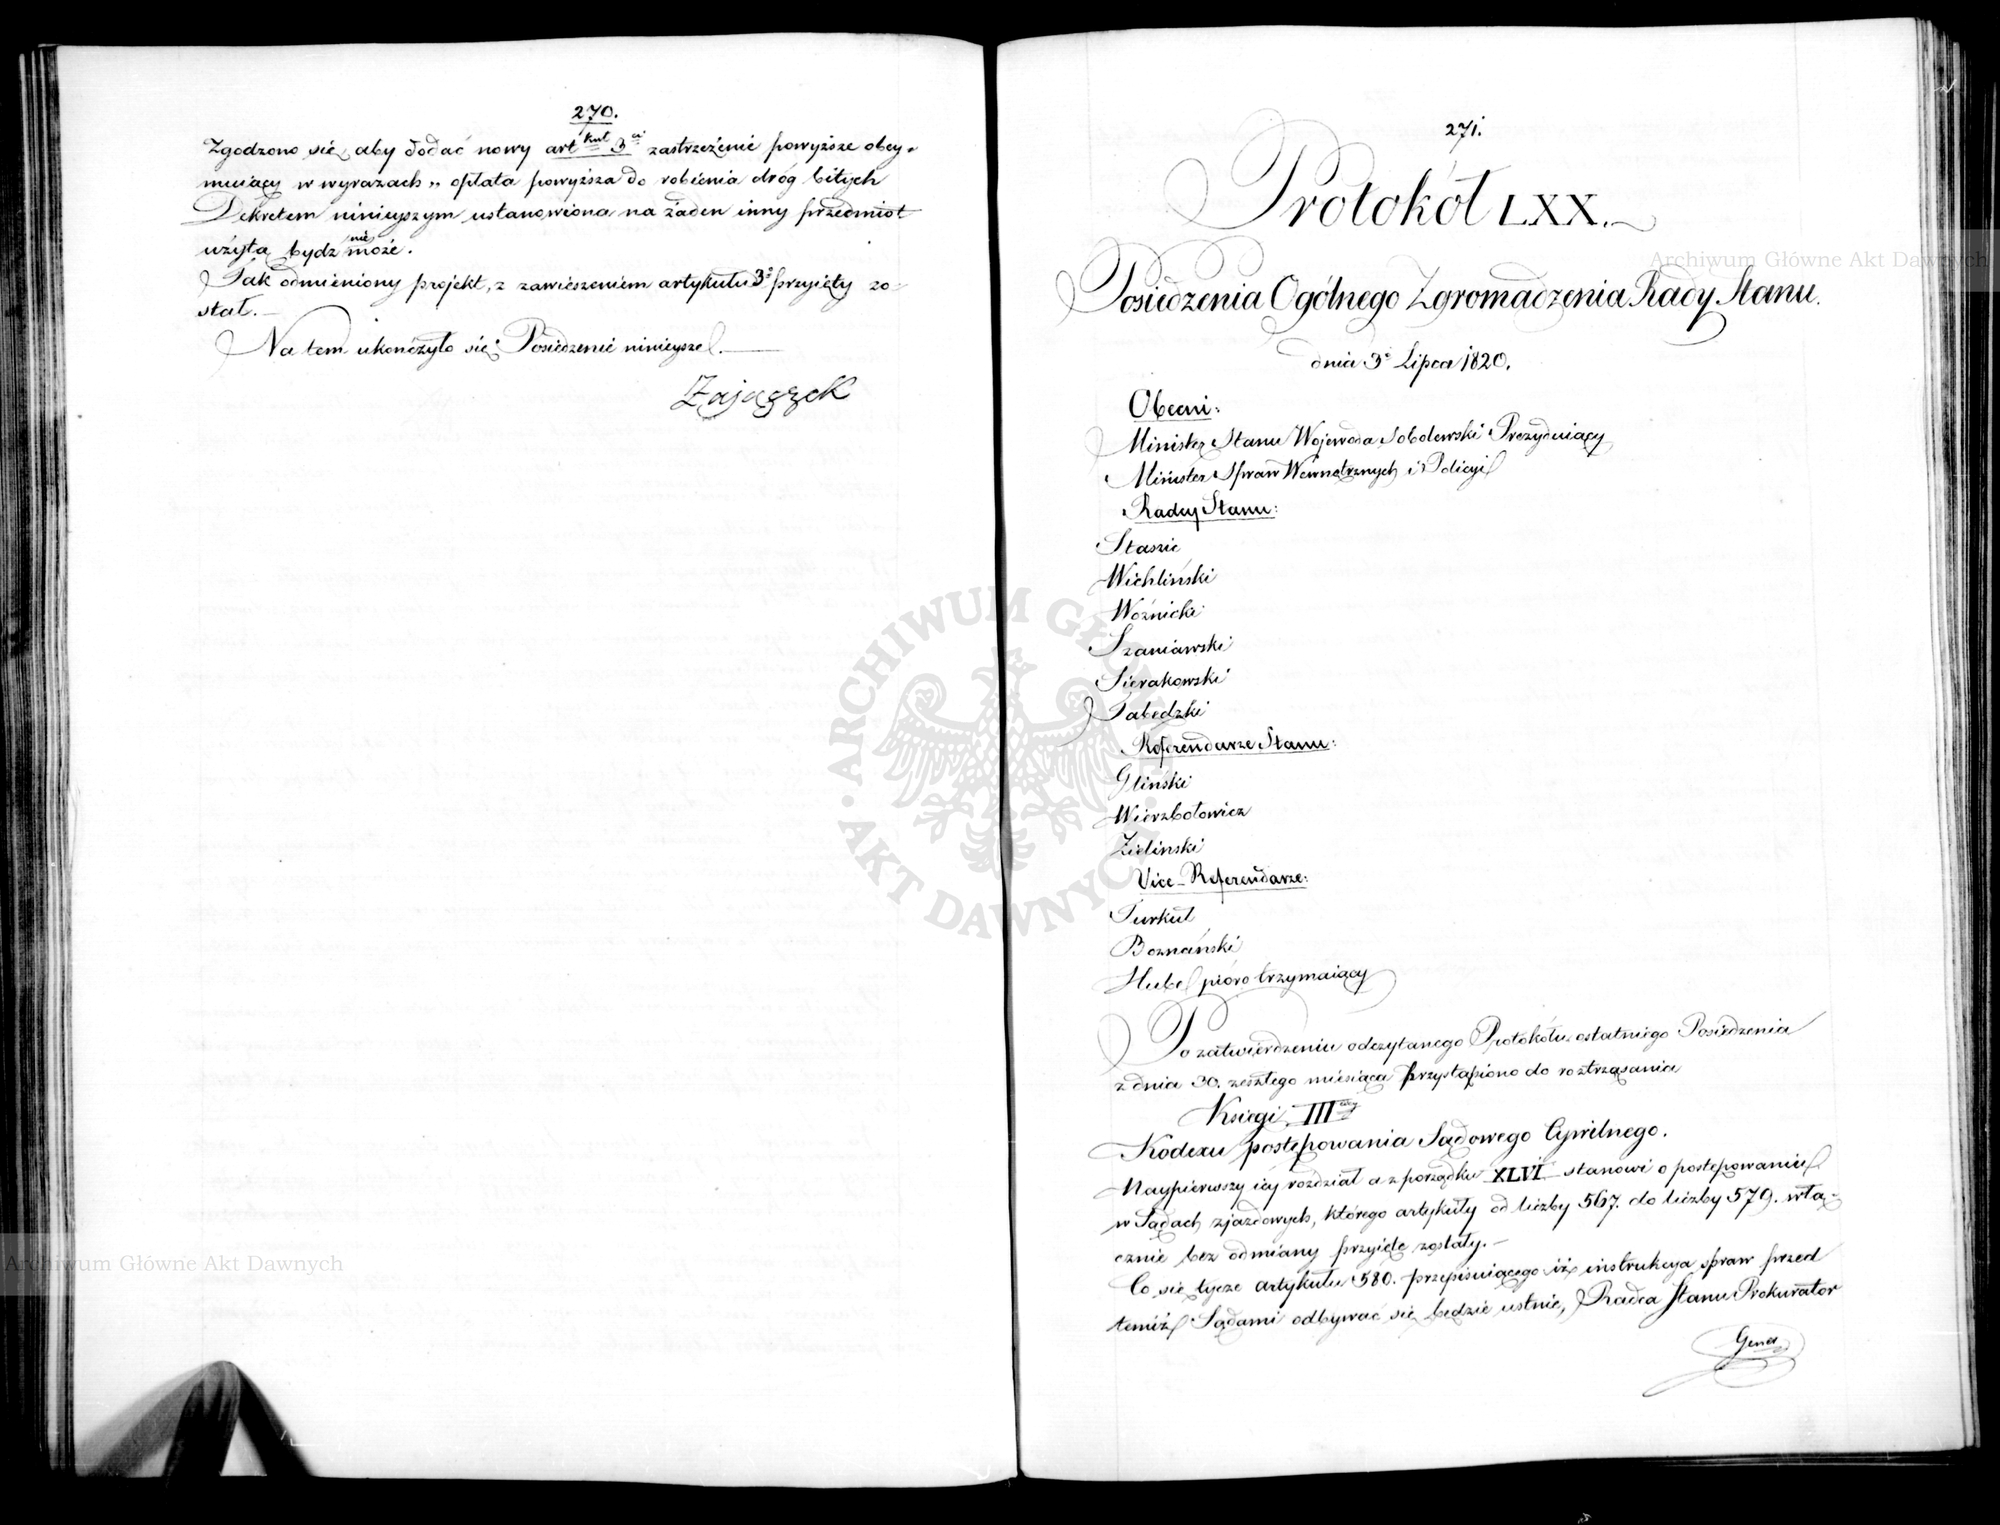 270.
Zgodzono się, aby dodać nowy artkuł 3ci zastrzeżenie powyższe obey-
muiący w wyrazach „ opłata powyższa do robienia dróg bitych
Dekretem ninieyszym ustanowiona na żaden inny przedmiot
użytą bydz nie może.
Tak odmieniony projekt, z zawieszeniem artykułu 3o przyięty zo-
stał. —
Na tem ukończyło się Posiedzenie ninieysze. —
Zajączek
271.
Protokół LXX.
Posiedzenia Ogólnego Zgromadzenia Rady Stanu.
dnia 3o Lipca 1820.
Obecni:
Minister Stanu Wojewoda Sobolewski Prezyduiący
Minister Spraw Wewnętrznych i Policyi
Radcy Stanu:
Staszic
Wichliński
Woźnicki
Szaniawski
Sierakowski
Łabędzki
Referendarze Stanu:
Gliński
Wierzbołowicz
Zieliński
Vice-Referendarze:
Turkuł
Boznański
Hube pióro trzymaiący
Po zatwierdzeniu odczytanego Protokółu ostatniego Posiedzenia
z dnia 30. zeszłego miesiąca przystąpiono do roztrząsania
Księgi III
Kodexu postępowania Sądowego Cywilnego.
Naypierwszy iéy rozdział a z porządku XLVI stanowi o postępowaniu
w Sądach zjazdowych, którego artykuły od liczby 567. do liczby 579. włą-
cznie bez odmiany przyięte zostały. —
Co się tycze artykułu 580. przepisuiącego iż instrukcya spraw przed
temiż Sądami odbywać się będzie ustnie, Radca Stanu Prokurator
Gener
Archiwum Główne Akt Dawnych
Archiwum Główne Akt Dawnych
ARCHIWUM GŁÓWNE AKT DAWNYCH